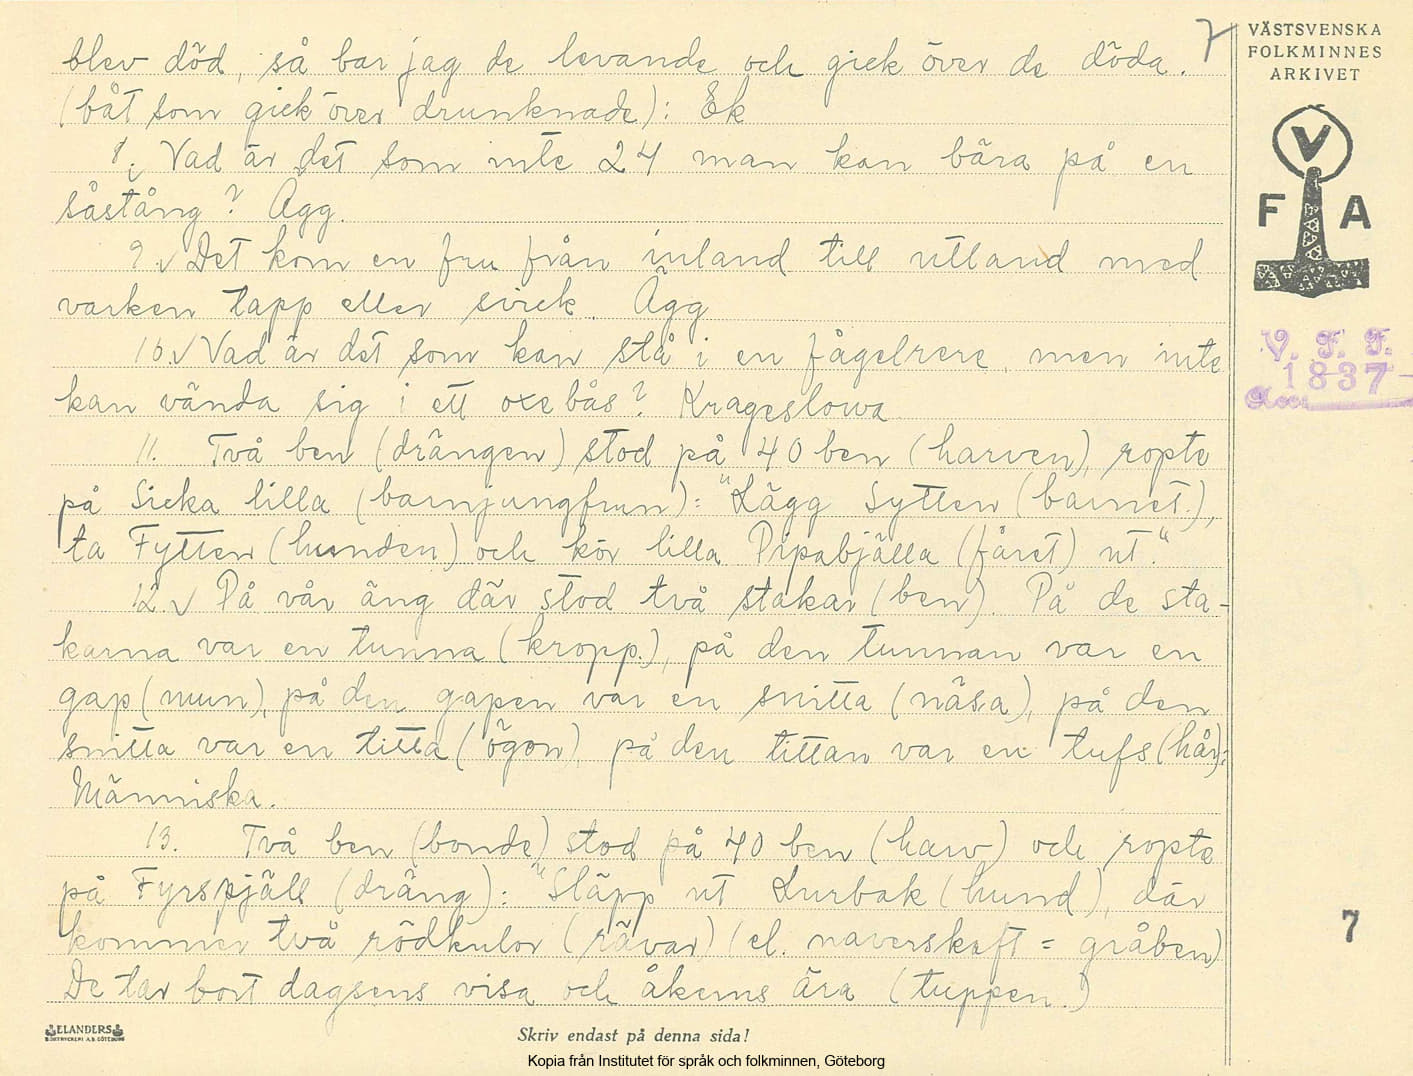 7
VÄSTSVENSKA
FOLKMINNES
ARKIVET
V
F A
V. F. F.
1837
Acc.
blev död, så bar jag de levande och gick över de döda.
(båt som gick över drunknade): Ek
8. Vad är det som inte 24 man kan bära på en
såstång? Ägg.
9. √ Det kom en fru från inland till utland med
varken tapp eller svick. Ägg
10. √ Vad är det som kan stå i en fågelrere, men inte
kan vända sig i ett oxebås? Krageslowa
11. Två ben (drängen) stod på 40 ben (harven), ropte
på Sicka lilla (barnjungfrun): "Lägg Sytten (barnet),
ta Fytten (hunden) och kör lilla Pipabjälla (fåret) ut."
12. √ På vår äng där stod två stakar (ben). På de sta-
karna var en tunna (kropp.), på den tunnan var en
gap (mun), på den gapen var en snitta (näsa), på den
snitta var en titta (ögon), på den tittan var en tufs (hår):
Människa.
13. Två ben (bonde) stod på 40 ben (harv) och ropte
på Fyrspjäll (dräng): "Släpp ut Lurbak (hund), där
kommer två rödkulor (rävar) (el. naverskaft = gråben)
De tar bort dagsens visa och åkerns ära (tuppen.)
7
ELANDERS
BOKTRYCKERI A.B. GÖTEBORG
Skriv endast på denna sida!
Kopia från Institutet för språk och folkminnen, Göteborg